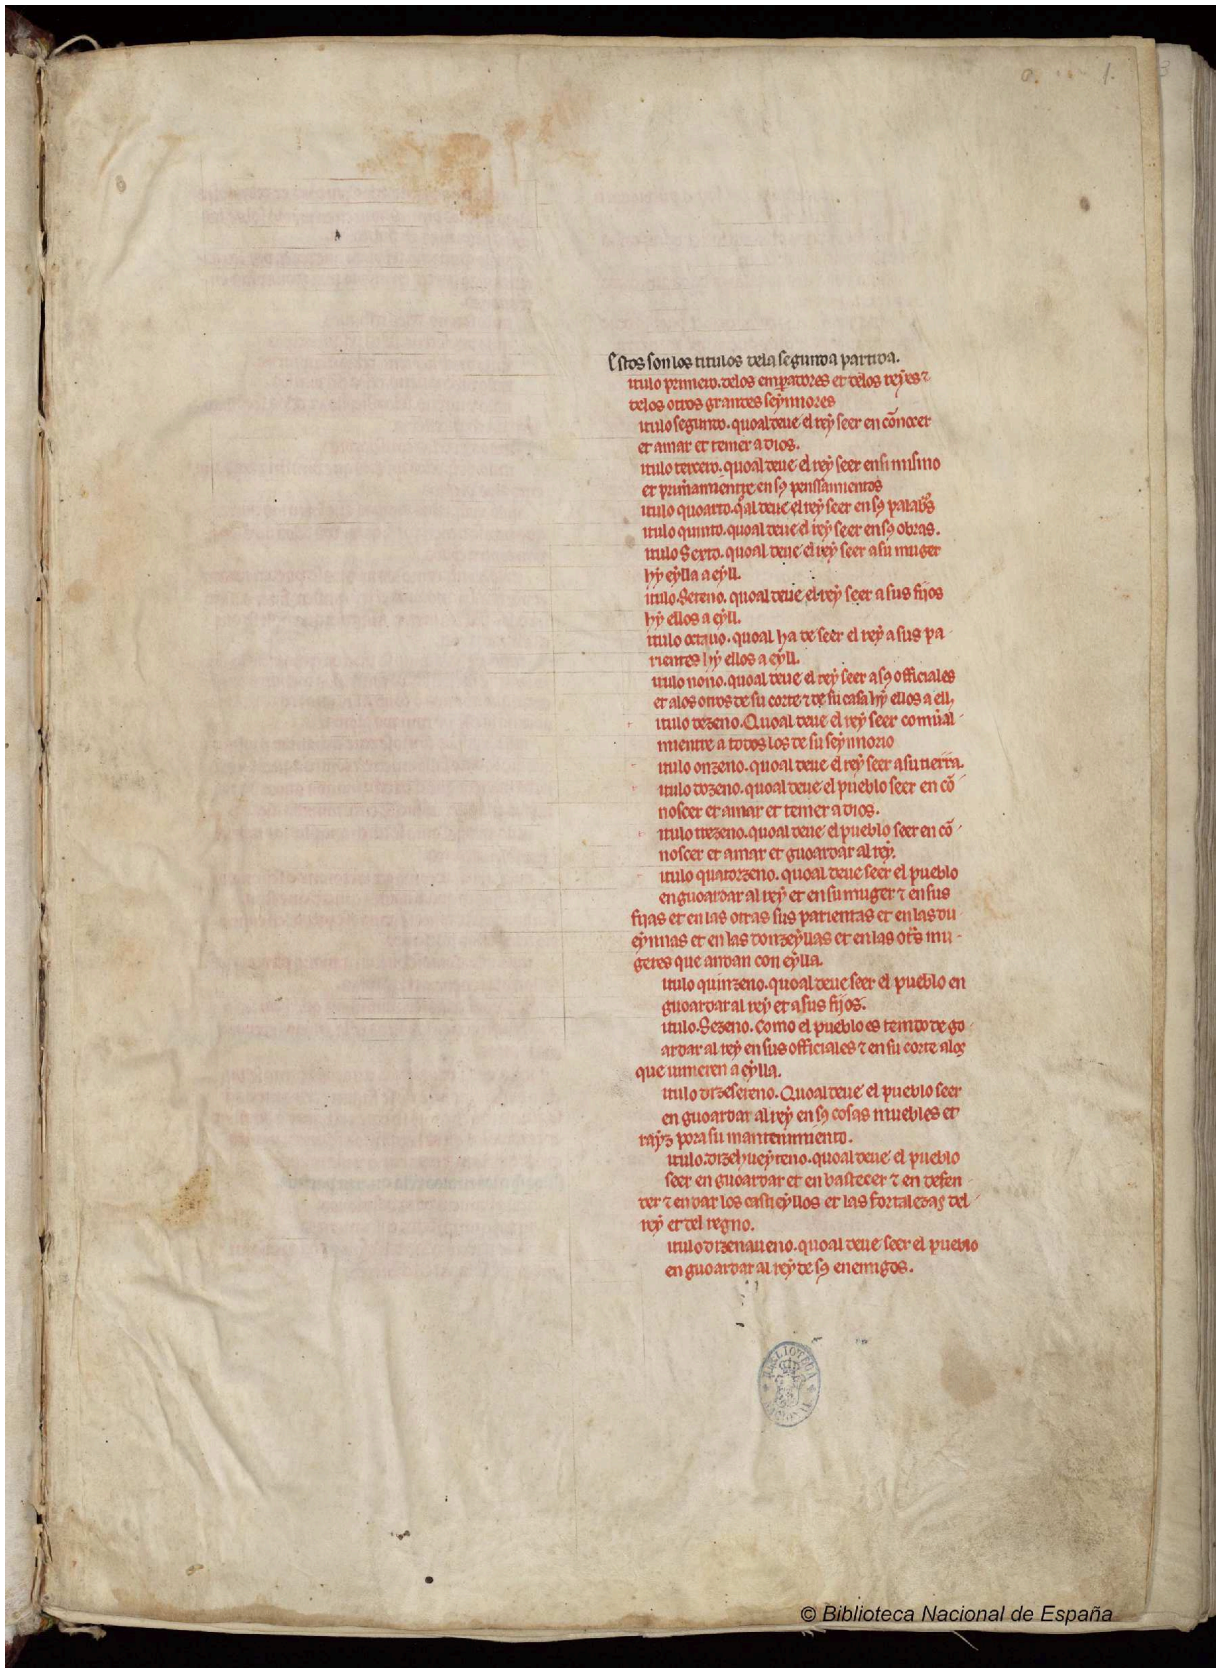 1.
Estos son los titulos dela segunda partida.
itulo primero. delos emperadores et delos reyes ⁊
delos otros grandes seynnores
itulo segundo. quoal deue el rey seer en cõnocer
et amar et temer a dios.
itulo tercero. quoal deue el rey seer en si mismo
et primamientre en sꝯ penssamientos
itulo quoarto. qͣl deue el rey seer en sꝯ palabͣs
itulo quinto. quoal deue el rey seer en sꝯ obras.
itulo Sexto. quoal deue el rey seer a su muger
hy eylla a eyll.
itulo. Seteno. quoal deue el rey seer a sus fijos
hy ellos a eyll.
itulo octauo. quoal ha de seer el rey a sus pa
rientes hy ellos a eyll.
itulo nono. quoal deue el rey seer a sꝯ officiales
et alos otros de su corte ⁊ de su casa hy ellos a ell.
itulo dezeno. Quoal deue el rey seer comũal
mientre a todos los de su seynnorio
itulo onzeno. quoal deue el rey seer a su tierra.
itulo dozeno. quoal deue el pueblo seer en cõ
noscer et amar et temer a dios.
itulo trezeno. quoal deue el pueblo seer en cõ
noscer et amar et guoardar al rey.
itulo quatorzeno. quoal deue seer el pueblo
en guoardar al rey et en su muger ⁊ en sus
fijas et en las otras sus parientas et en las du
eynnas et en las donzeyllas et en las otͣs mu
geres que andan con eylla.
itulo quinzeno. quoal deue seer el pueblo en
guoardar al rey et a sus fijos.
itulo. Sezeno. Como el pueblo es tenido de go
ardar al rey en sus officiales ⁊ en su corte alos
que uinieren a eylla.
itulo dizeseteno. Quoal deue el pueblo seer
en guoardar al rey en sꝯ cosas muebles et
rayz pora su mantenimiento.
itulo. dizehueyteno. quoal deue el pueblo
seer en guoardar et en bastecer ⁊ en defen
der ⁊ en dar los casteyllos et las fortalezas del
rey et del regno.
itulo dizenaueno. quoal deue seer el pueblo
en guoardar al rey de sꝯ enemigos.
BIBLIOTECA NACIONAL
© Biblioteca Nacional de España